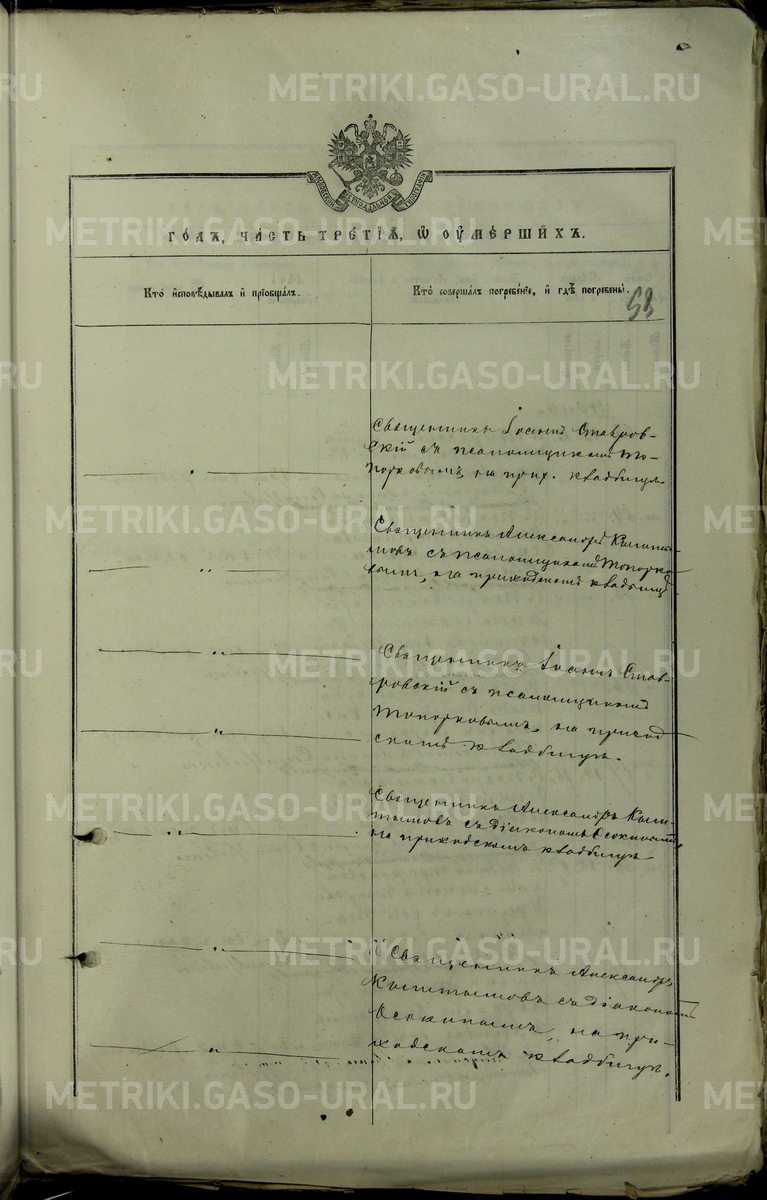 МОСКОВСКОЙ СѴНОДАЛЬНОЙ ТИПОГРАФІИ
го́дъ, ча́сть тре́тїѧ, ѡ҆ ᲂу҆ме́ршихъ.
Кто̀ и҆сповѣ́дывалъ и҆ прїобща́лъ.
Кто̀ соверша́лъ погребе́нїе, и҆ гдѣ̀ погребены̀.
53
Священникъ Іоаннъ Ставров-
скій съ псаломщикомъ То-
порковымъ, на прих. кладбищѣ
Священникъ Александръ
съ псаломщикомъ Топорко-
вымъ, на приходскомъ кладбищѣ
Священникъ Іоаннъ Став-
ровскій съ псаломщикомъ
Топорковымъ, на приход
скомъ кладбищѣ.
Священникъ Александръ
съ діакономъ Осокинымъ,
на приходскомъ кладбищѣ
Священникъ Александръ
съ діакономъ
Осокинымъ, на при-
ходскомъ кладбищѣ.
METRIKI.GASO-URAL.RU